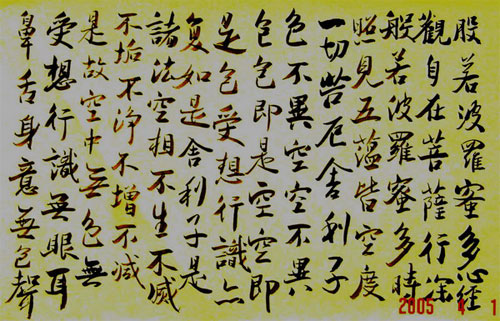 般若波羅蜜多心經
觀自在菩薩行深
般若波羅蜜多時
照見五蘊皆空度
一切苦厄舍利子
色不異空空不異
色色即是空空即
是色受想行識亦
复如是舍利子是
諸法空相不生不滅
不垢不净不增不减
是故空中無色無
受想行識無眼耳
鼻舌身意無色聲
2005 4 1